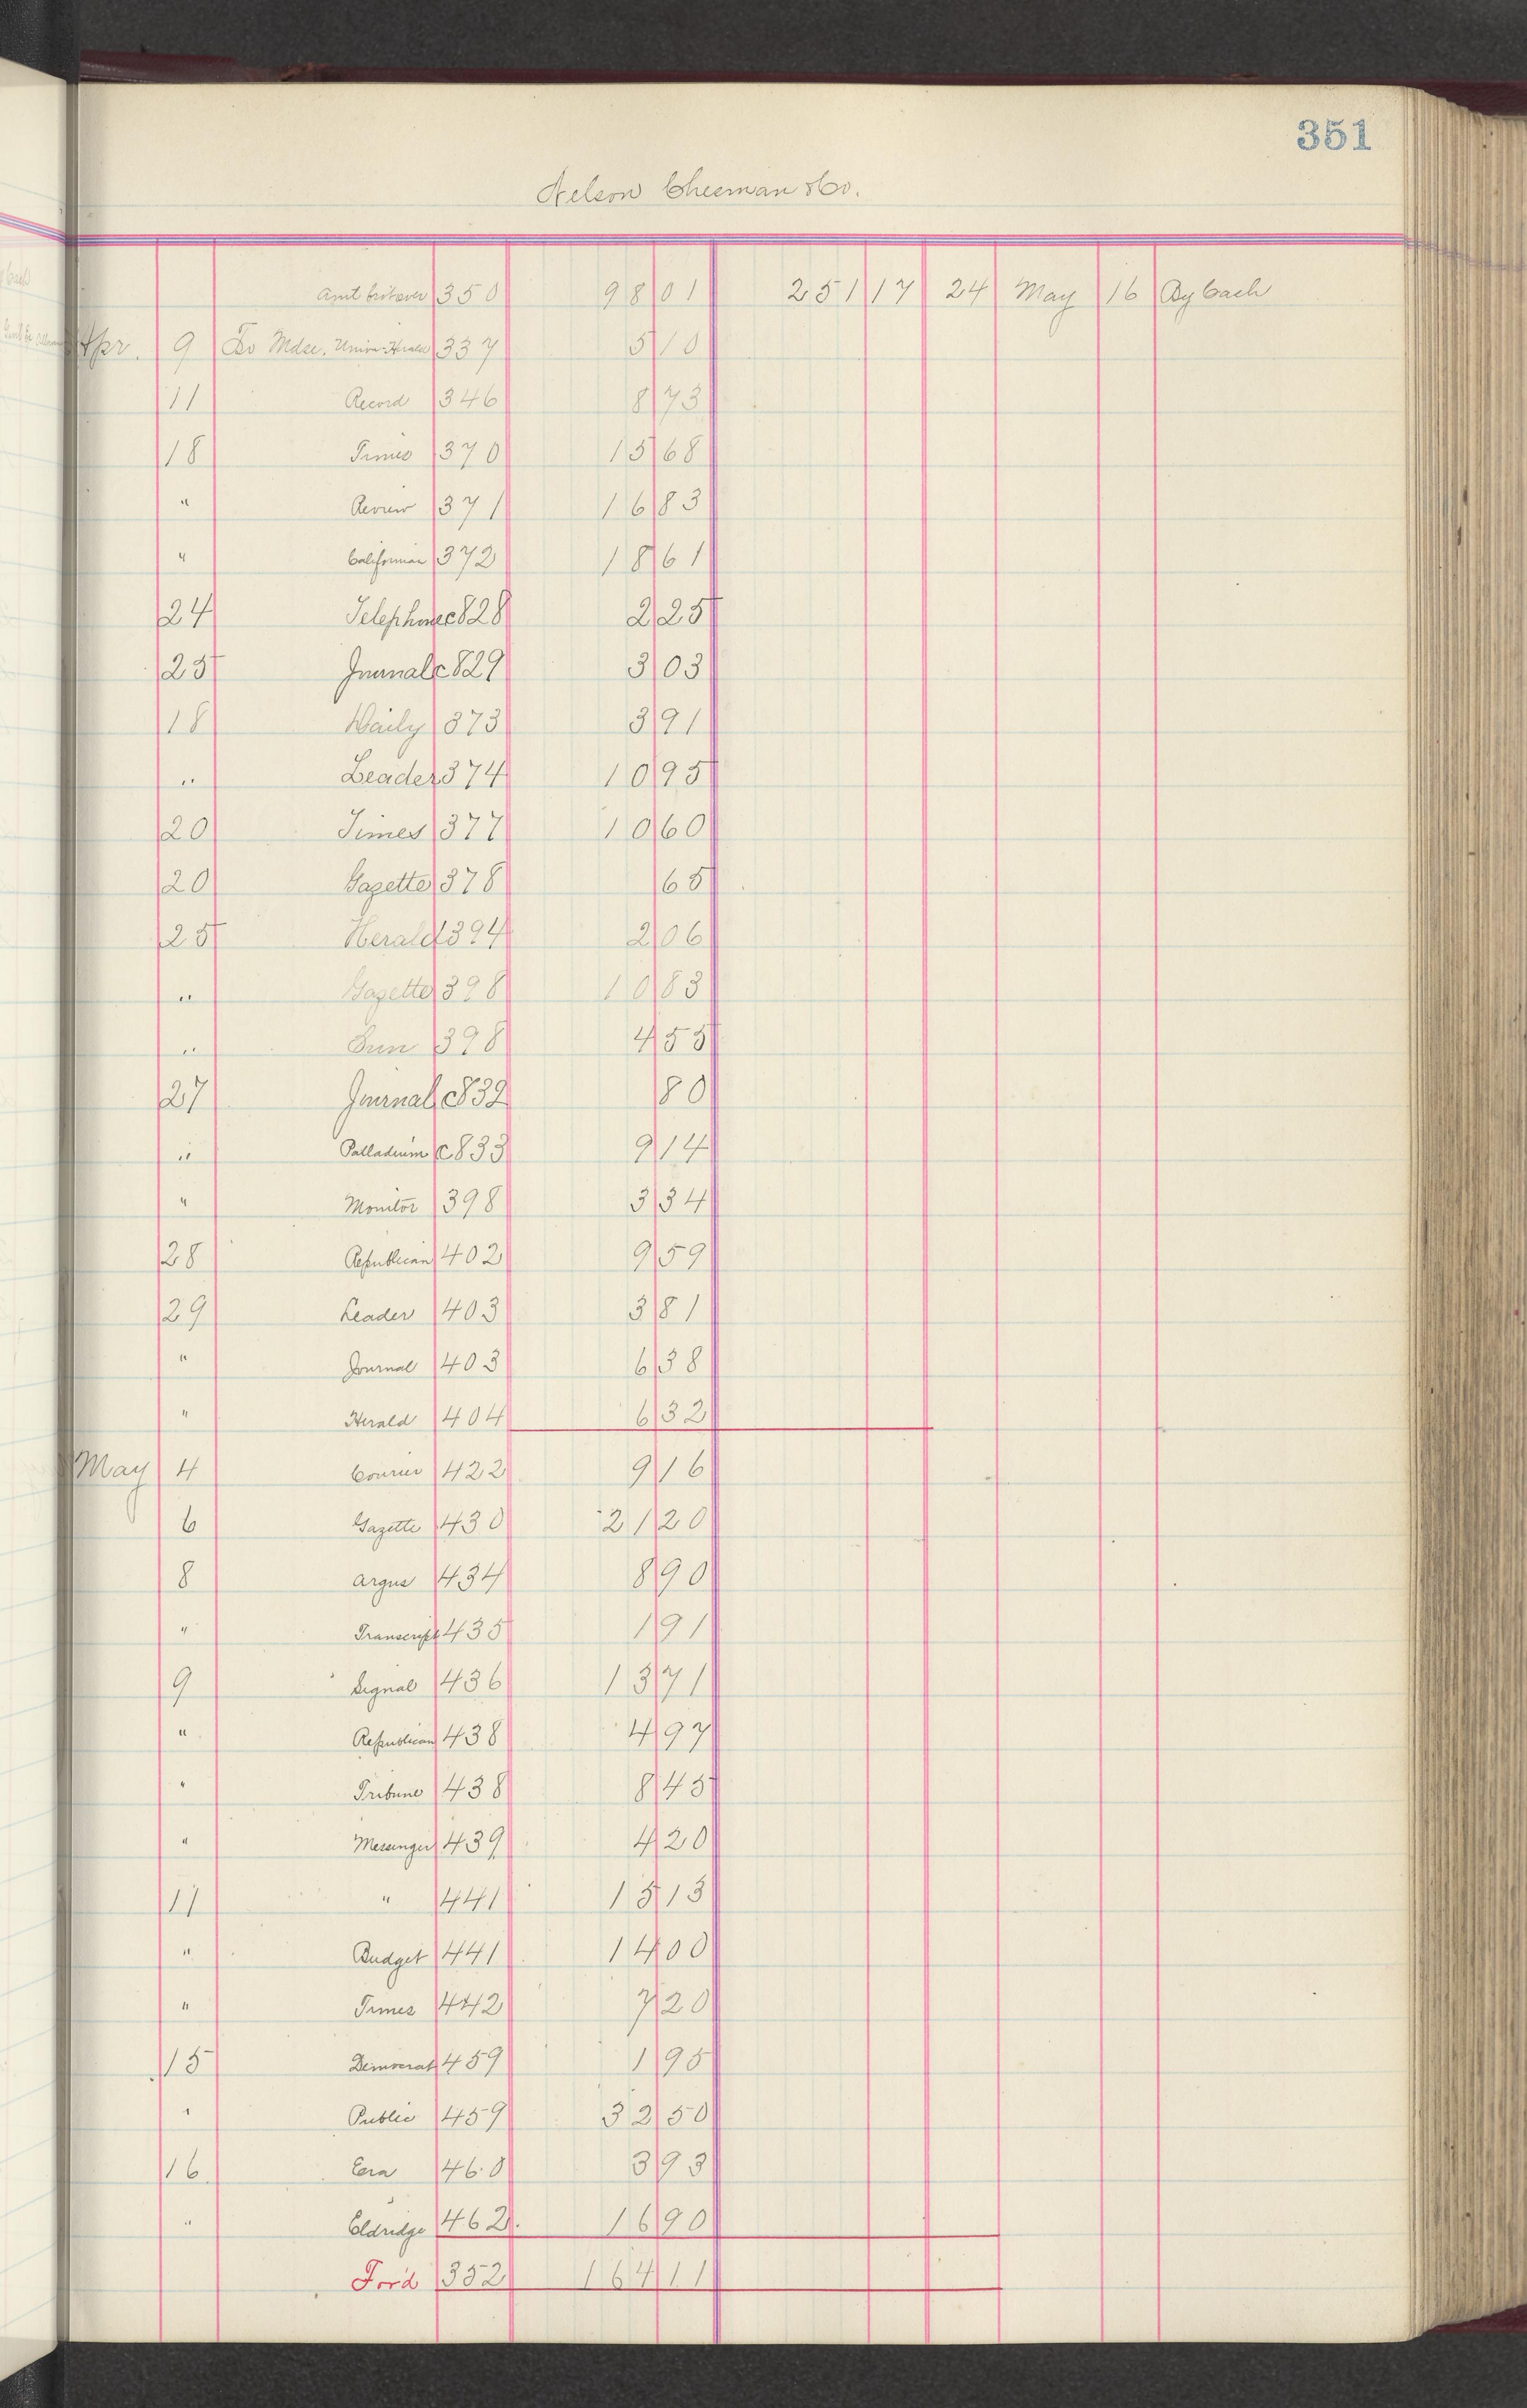 351
Nelson Chesman & Co.
Amt bro't over 350 98 01 251 17 24 May 16 By Cash
Apr. 9 To Mdse. Union-Herald 337 5 10
11 Record 346 8 73
18 Times 370 15 68
" Review 371 16 83
" Californian 372 18 61
24 Telephone c828 2 25
25 Journal c829 3 03
18 Daily 373 3 91
" Leader 374 10 95
20 Times 377 10 60
20 Gazette 378 65
25 Herald 394 2 06
" Gazette 398 10 83
" Sun 398 4 55
27 Journal c832 80
" Palladium c833 9 14
" Monitor 398 3 34
28 Republican 402 9 59
29 Leader 403 3 81
" Journal 403 6 38
" Herald 404 6 32
May 4 Courier 422 9 16
6 Gazette 430 21 20
8 Argus 434 8 90
" Transcript 435 1 91
9 Signal 436 13 71
" Republican 438 4 97
" Tribune 438 8 45
" Messenger 439 4 20
11 " 441 15 13
" Budget 441 14 00
" Times 442 7 20
15 Democrat 459 1 95
" Public 459 32 50
16 Era 460 3 93
" Eldridge 462 16 90
For'd 352 164 11